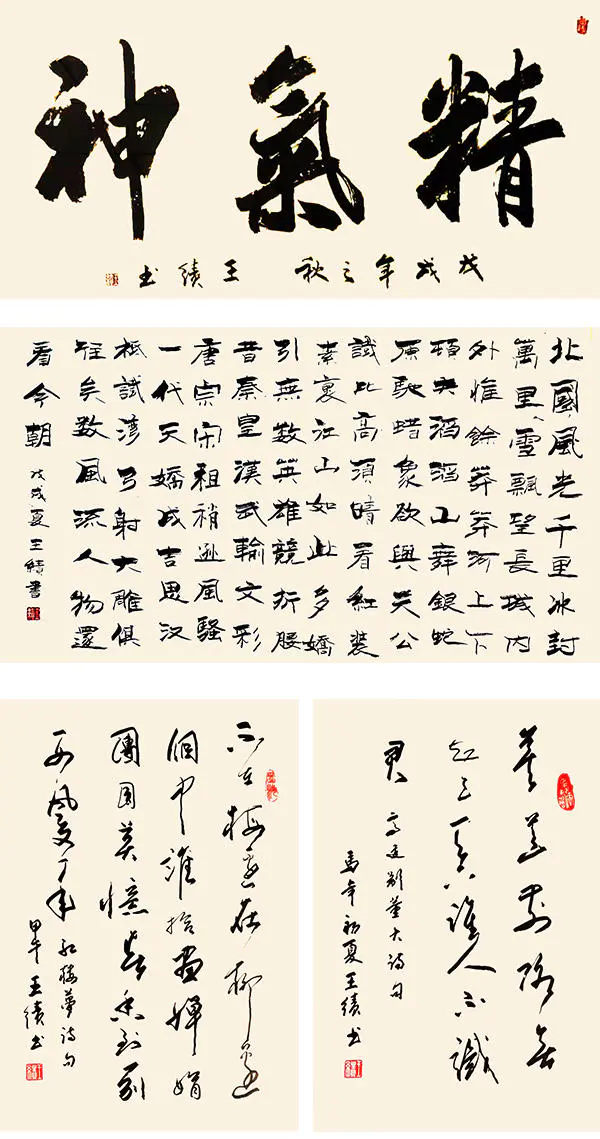 精氣神
戊戌年之秋 王績书
北國風光千里冰封
萬里雪飄望長城内
外惟餘莽莽河上下
頓失滔滔山舞銀蛇
原馳蜡象欲與天公
試比高須晴看紅裝
素裹江山如此多嬌
引無数英雄競折腰
昔秦皇漢武輸文彩
唐宗宋祖稍遜風騷
一代天嬌成吉思汉
祗試彎弓射大雕俱
往矣数風流人物還
看今朝 戊戌夏王績書
莫愁前路無
知己天下誰人不識
君 高适别董大詩句
馬年初夏王績书
不在梅邊在柳邊
個中誰拾畫嬋娟
團圓莫憶春香到一别
西風又一年 红楼夢詩句
甲午王績书